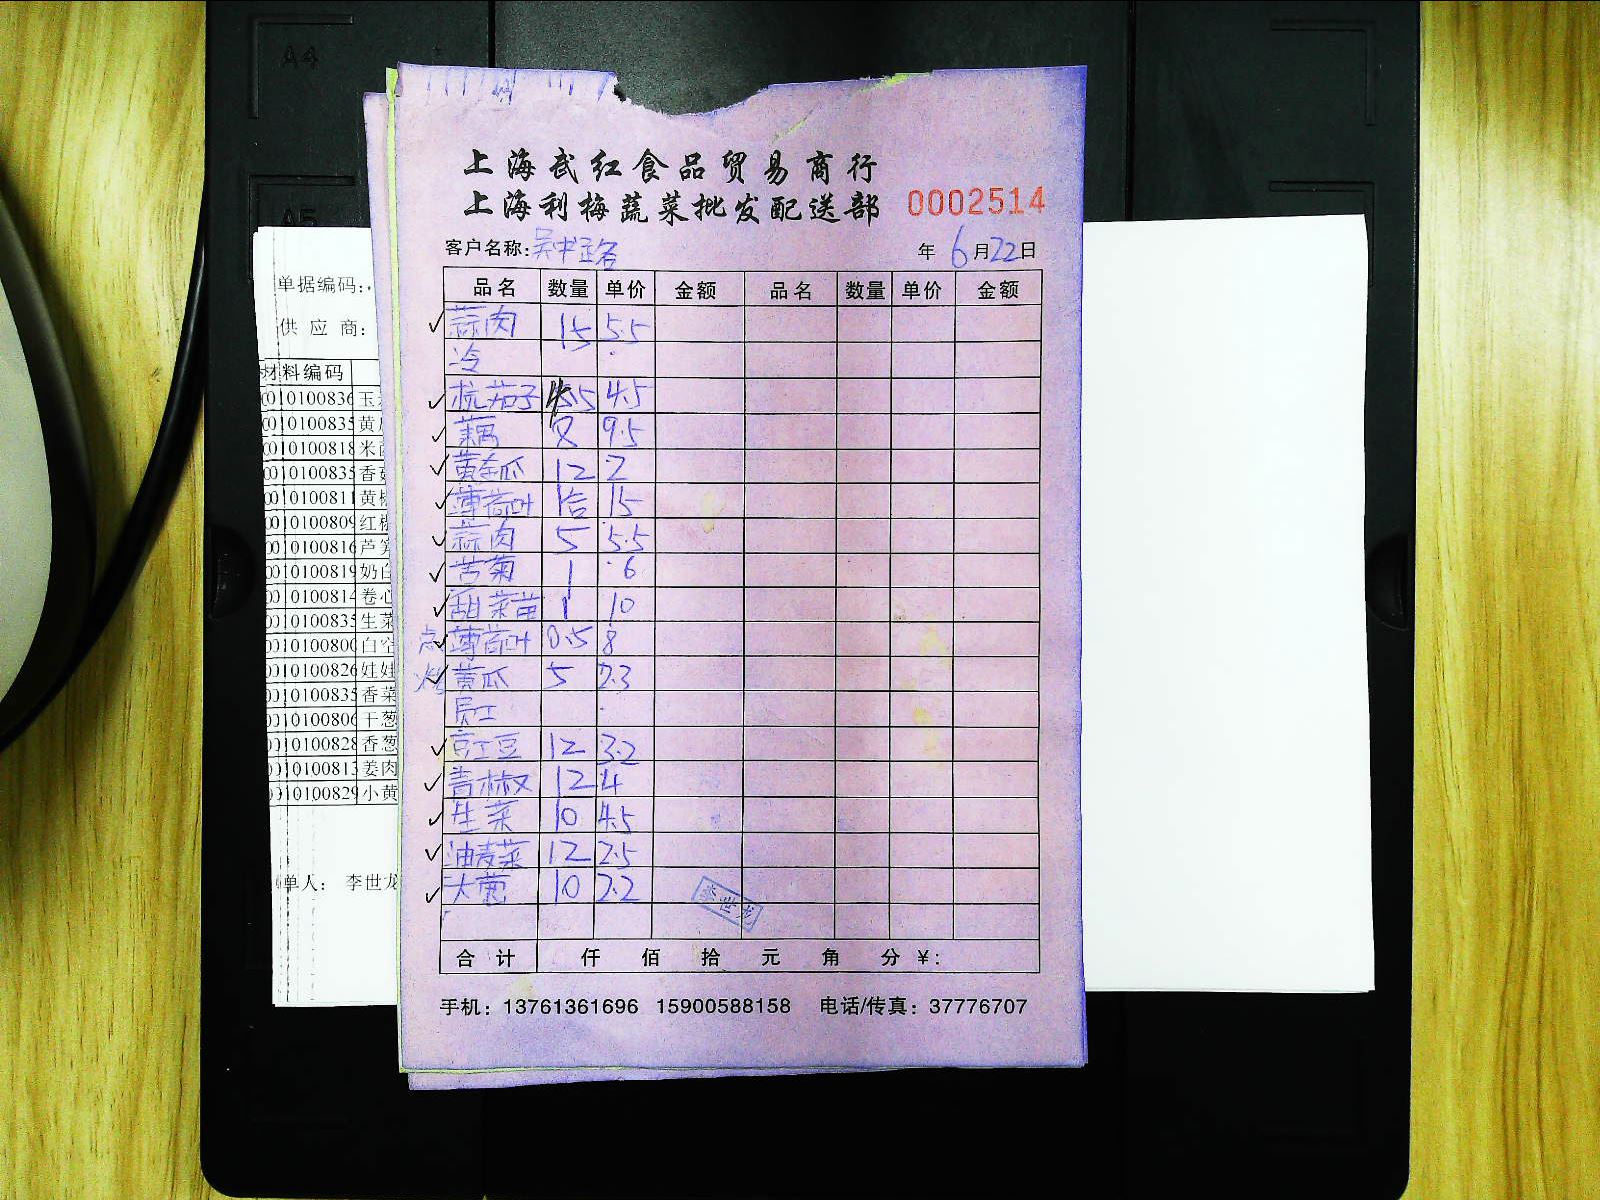 A4
A5
上海武红食品贸易商行
上海利梅蔬菜批发配送部 0002514
客户名称:吴中路 年 6月22日
品名 数量 单价 金额 品名 数量 单价 金额
蒜肉 15 5.5
冷
杭茄子 4.5
藕 9.5
黄冬瓜 12 2
薄荷叶 1合 15
蒜肉 5 5.5
苦菊 1 6
甜菜苗 1 10
点 薄荷叶 0.5 8
烧 黄瓜 5 2.3
员工
豇豆 12 3.2
青椒 12 4
生菜 10 4.5
油麦菜 12 2.5
大葱 10 2.2
李世龙
合计 仟 佰 拾 元 角 分 ¥:
手机: 13761361696 15900588158 电话/传真: 37776707
单据编码:
供应商:
材料编码
0010100836 玉
0010100835 黄
0010100818 米
0010100835 香菇
0010100811 黄椒
0010100809 红椒
0010100816 芦
0010100819 奶白
0010100814 卷心
0010100835 生菜
0010100800 白
0010100826 娃娃
0010100835 香菜
0010100806 干葱
0010100828 香葱
0010100813 姜肉
0010100829 小黄
单人: 李世龙